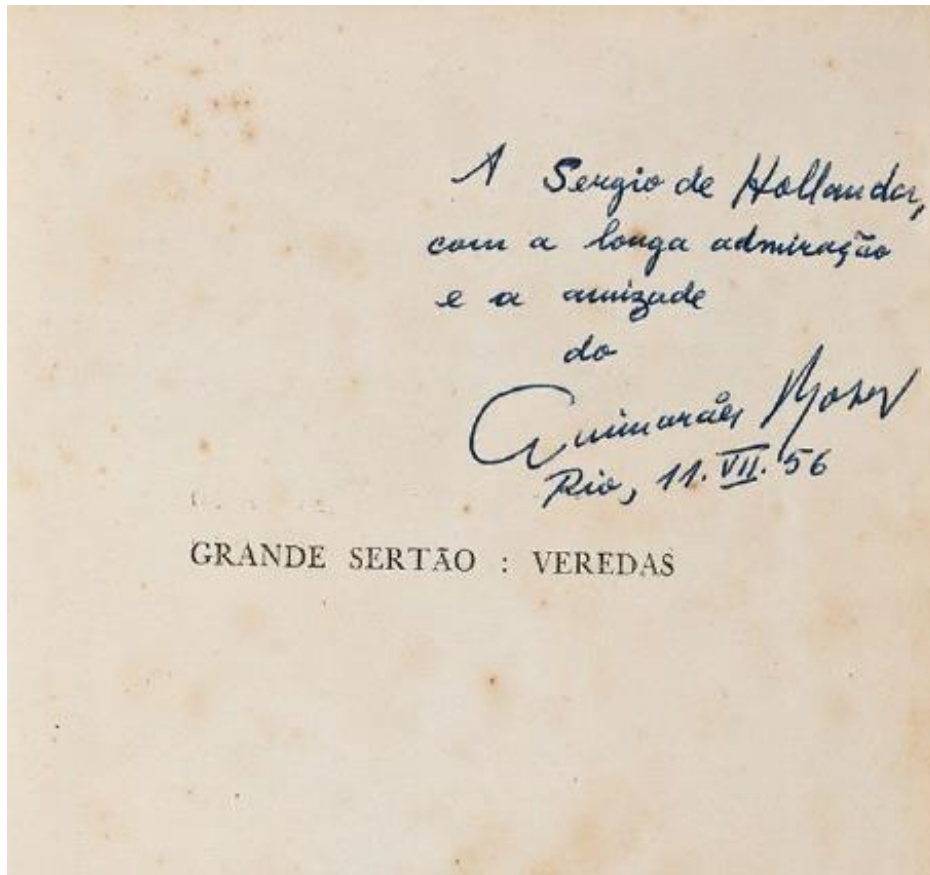 A Sergio de Hollanda,
com a longa admiração
e a amizade
do
Guimarães Rosa
Rio, 11.VII.56
GRANDE SERTÃO : VEREDAS